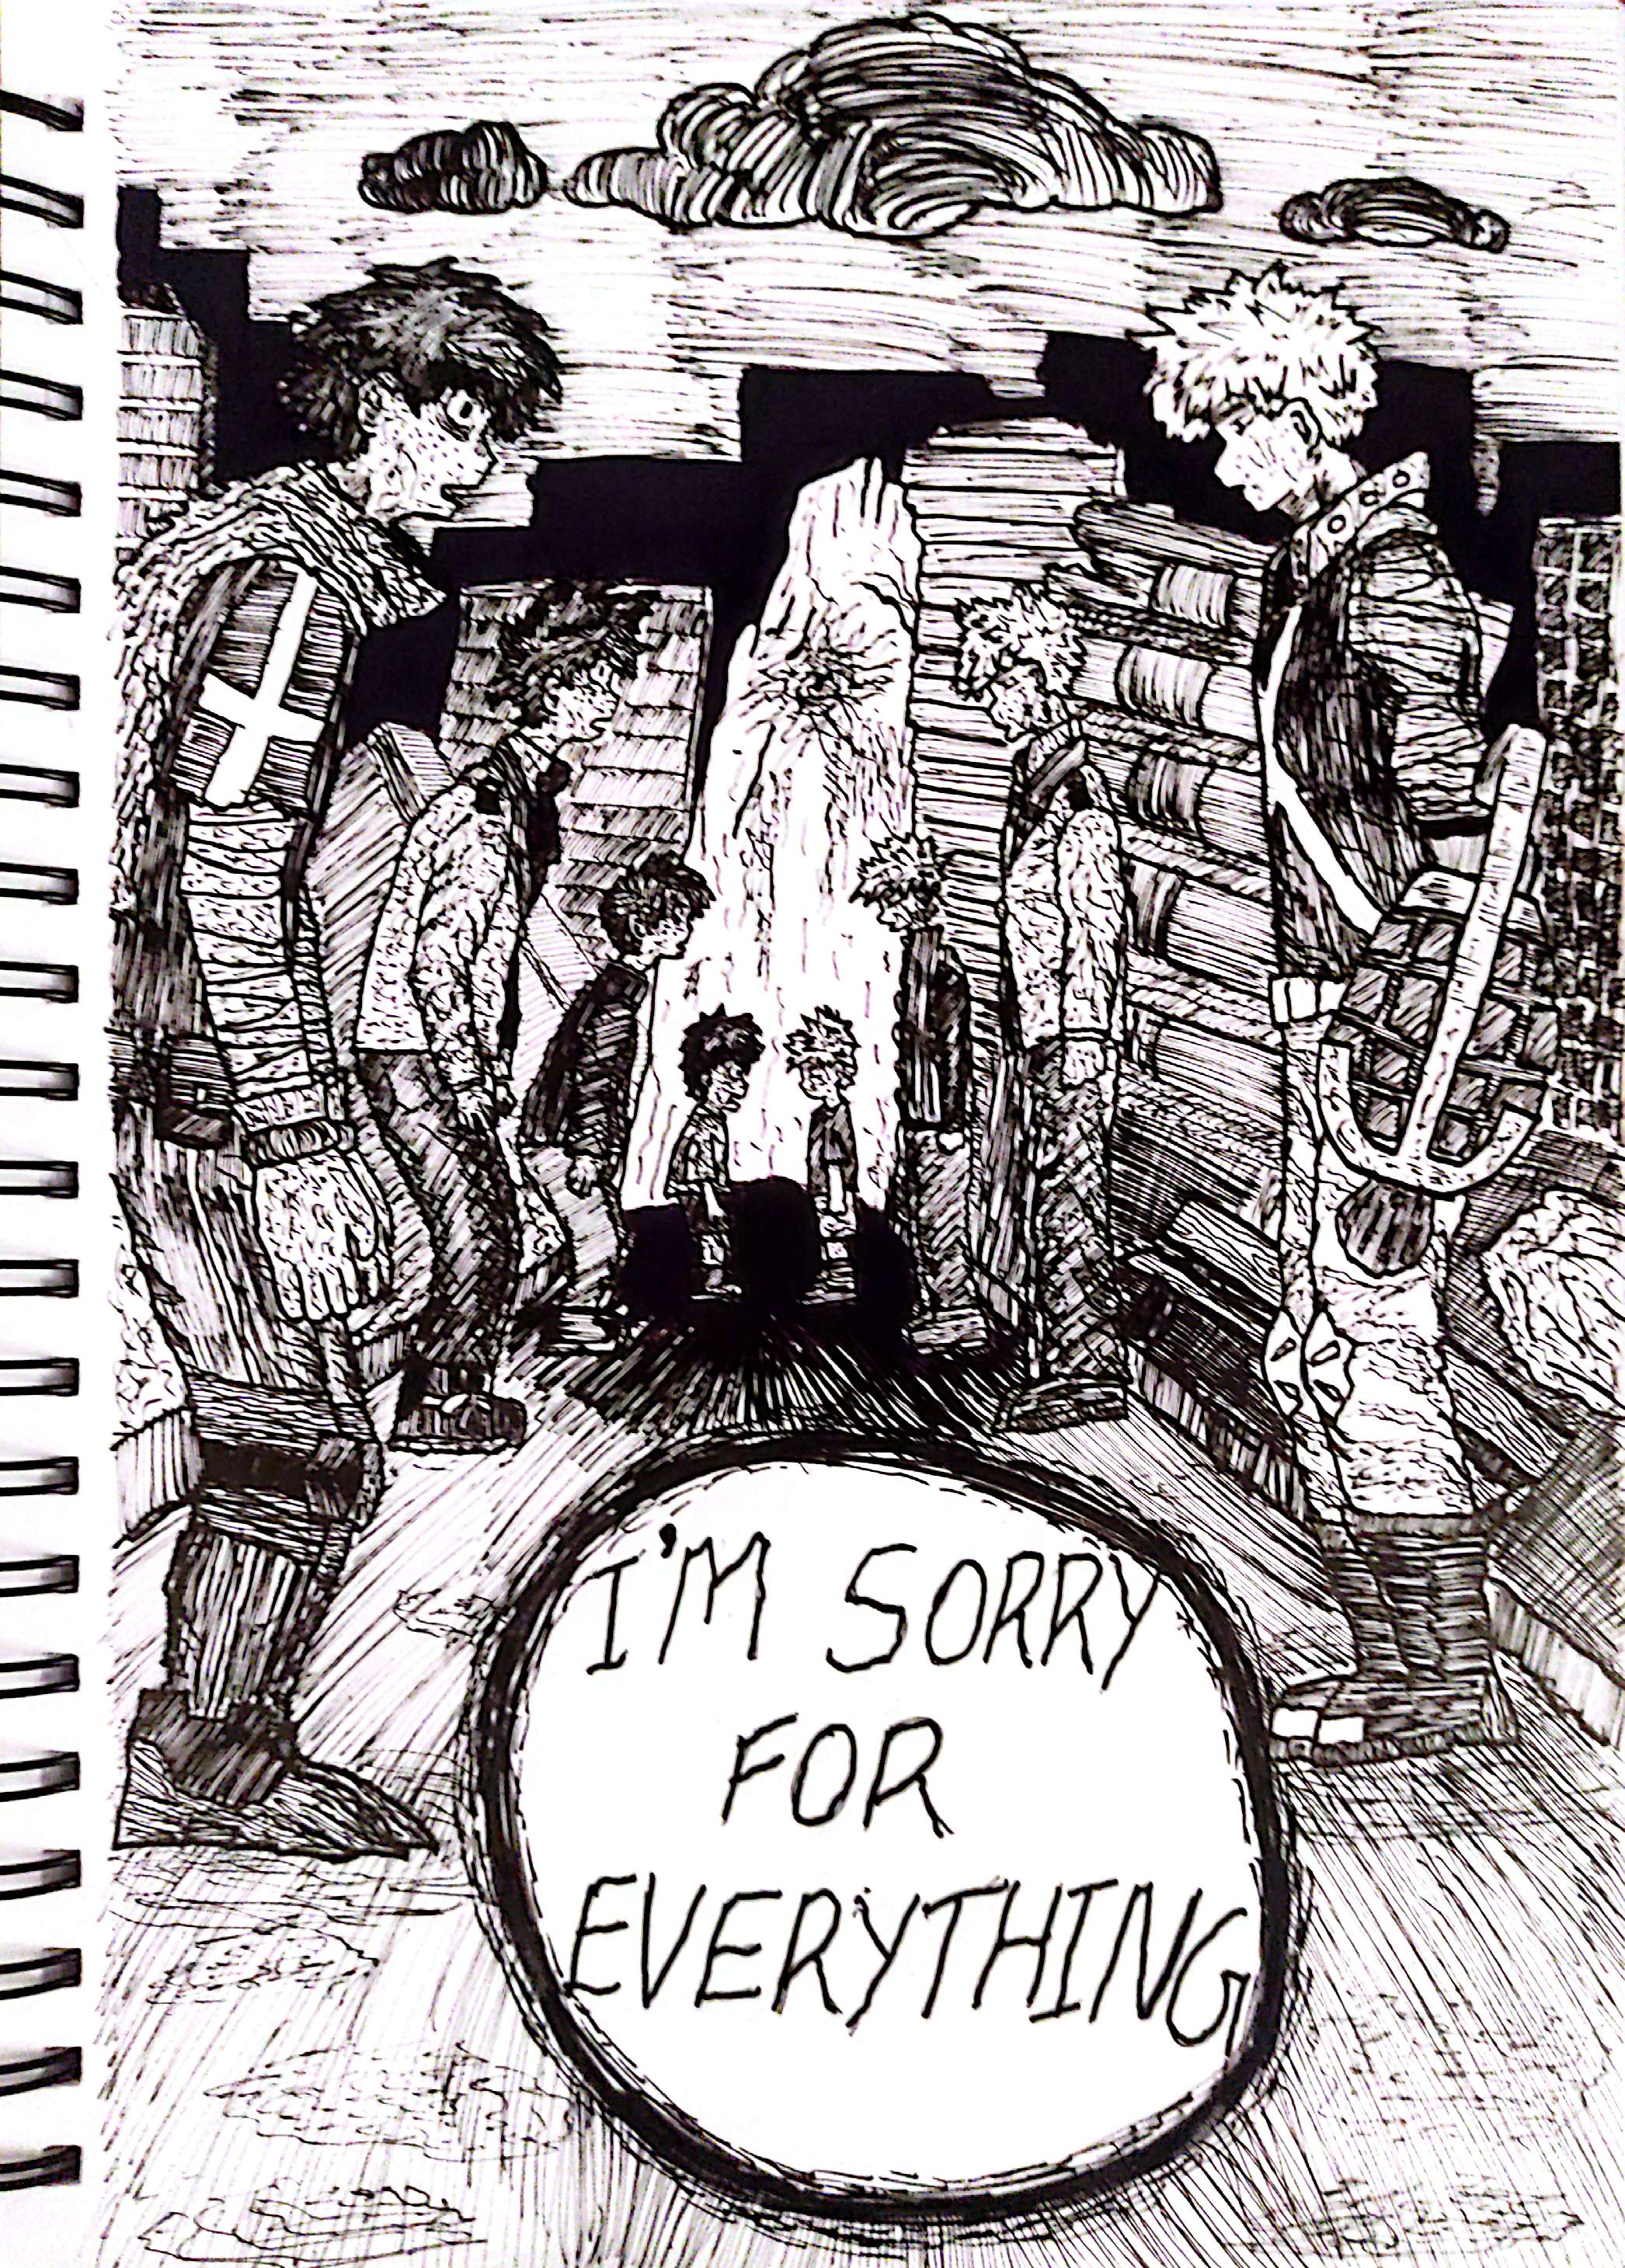 I'M SORRY
FOR
EVERYTHING